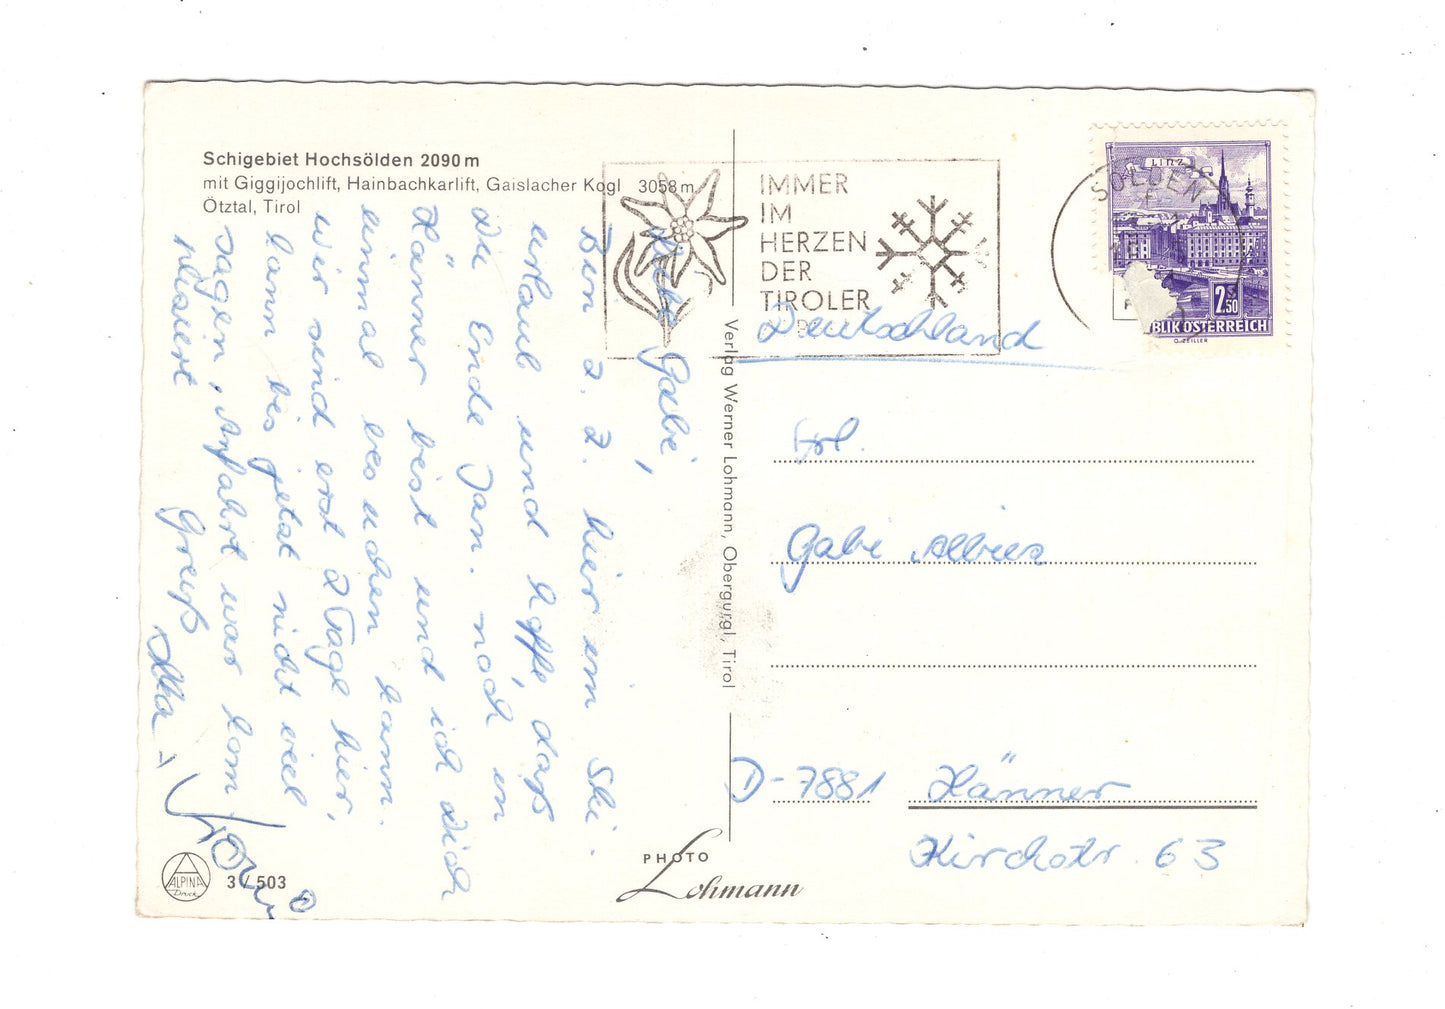 Schigebiet Hochsölden 2090 m
mit Giggijochlift, Hainbachkarlift, Gaislacher Kogl 3058 m
Ötztal, Tirol
Liebe Gabi,
Bin z. Z. hier im Ski-
urlaub und hoffe, daß
Du Ende Jan. noch in
Hänner bist und ich Dich
einmal besuchen kann.
Wir sind erst 2 Tage hier,
kann bis jetzt nicht viel
sagen, Anfahrt war kom
pliziert
Gruß
IMMER
IM
HERZEN
DER
TIROLER
SÖLDEN
LINZ
2.50
BLIK ÖSTERREICH
Deutschland
Frl.
Gabi Albiez
D-7881 Hänner
Kirchstr. 63
Verlag Werner Lohmann, Obergurgl, Tirol
PHOTO
Lohmann
ALPINA
Druck
3 / 503